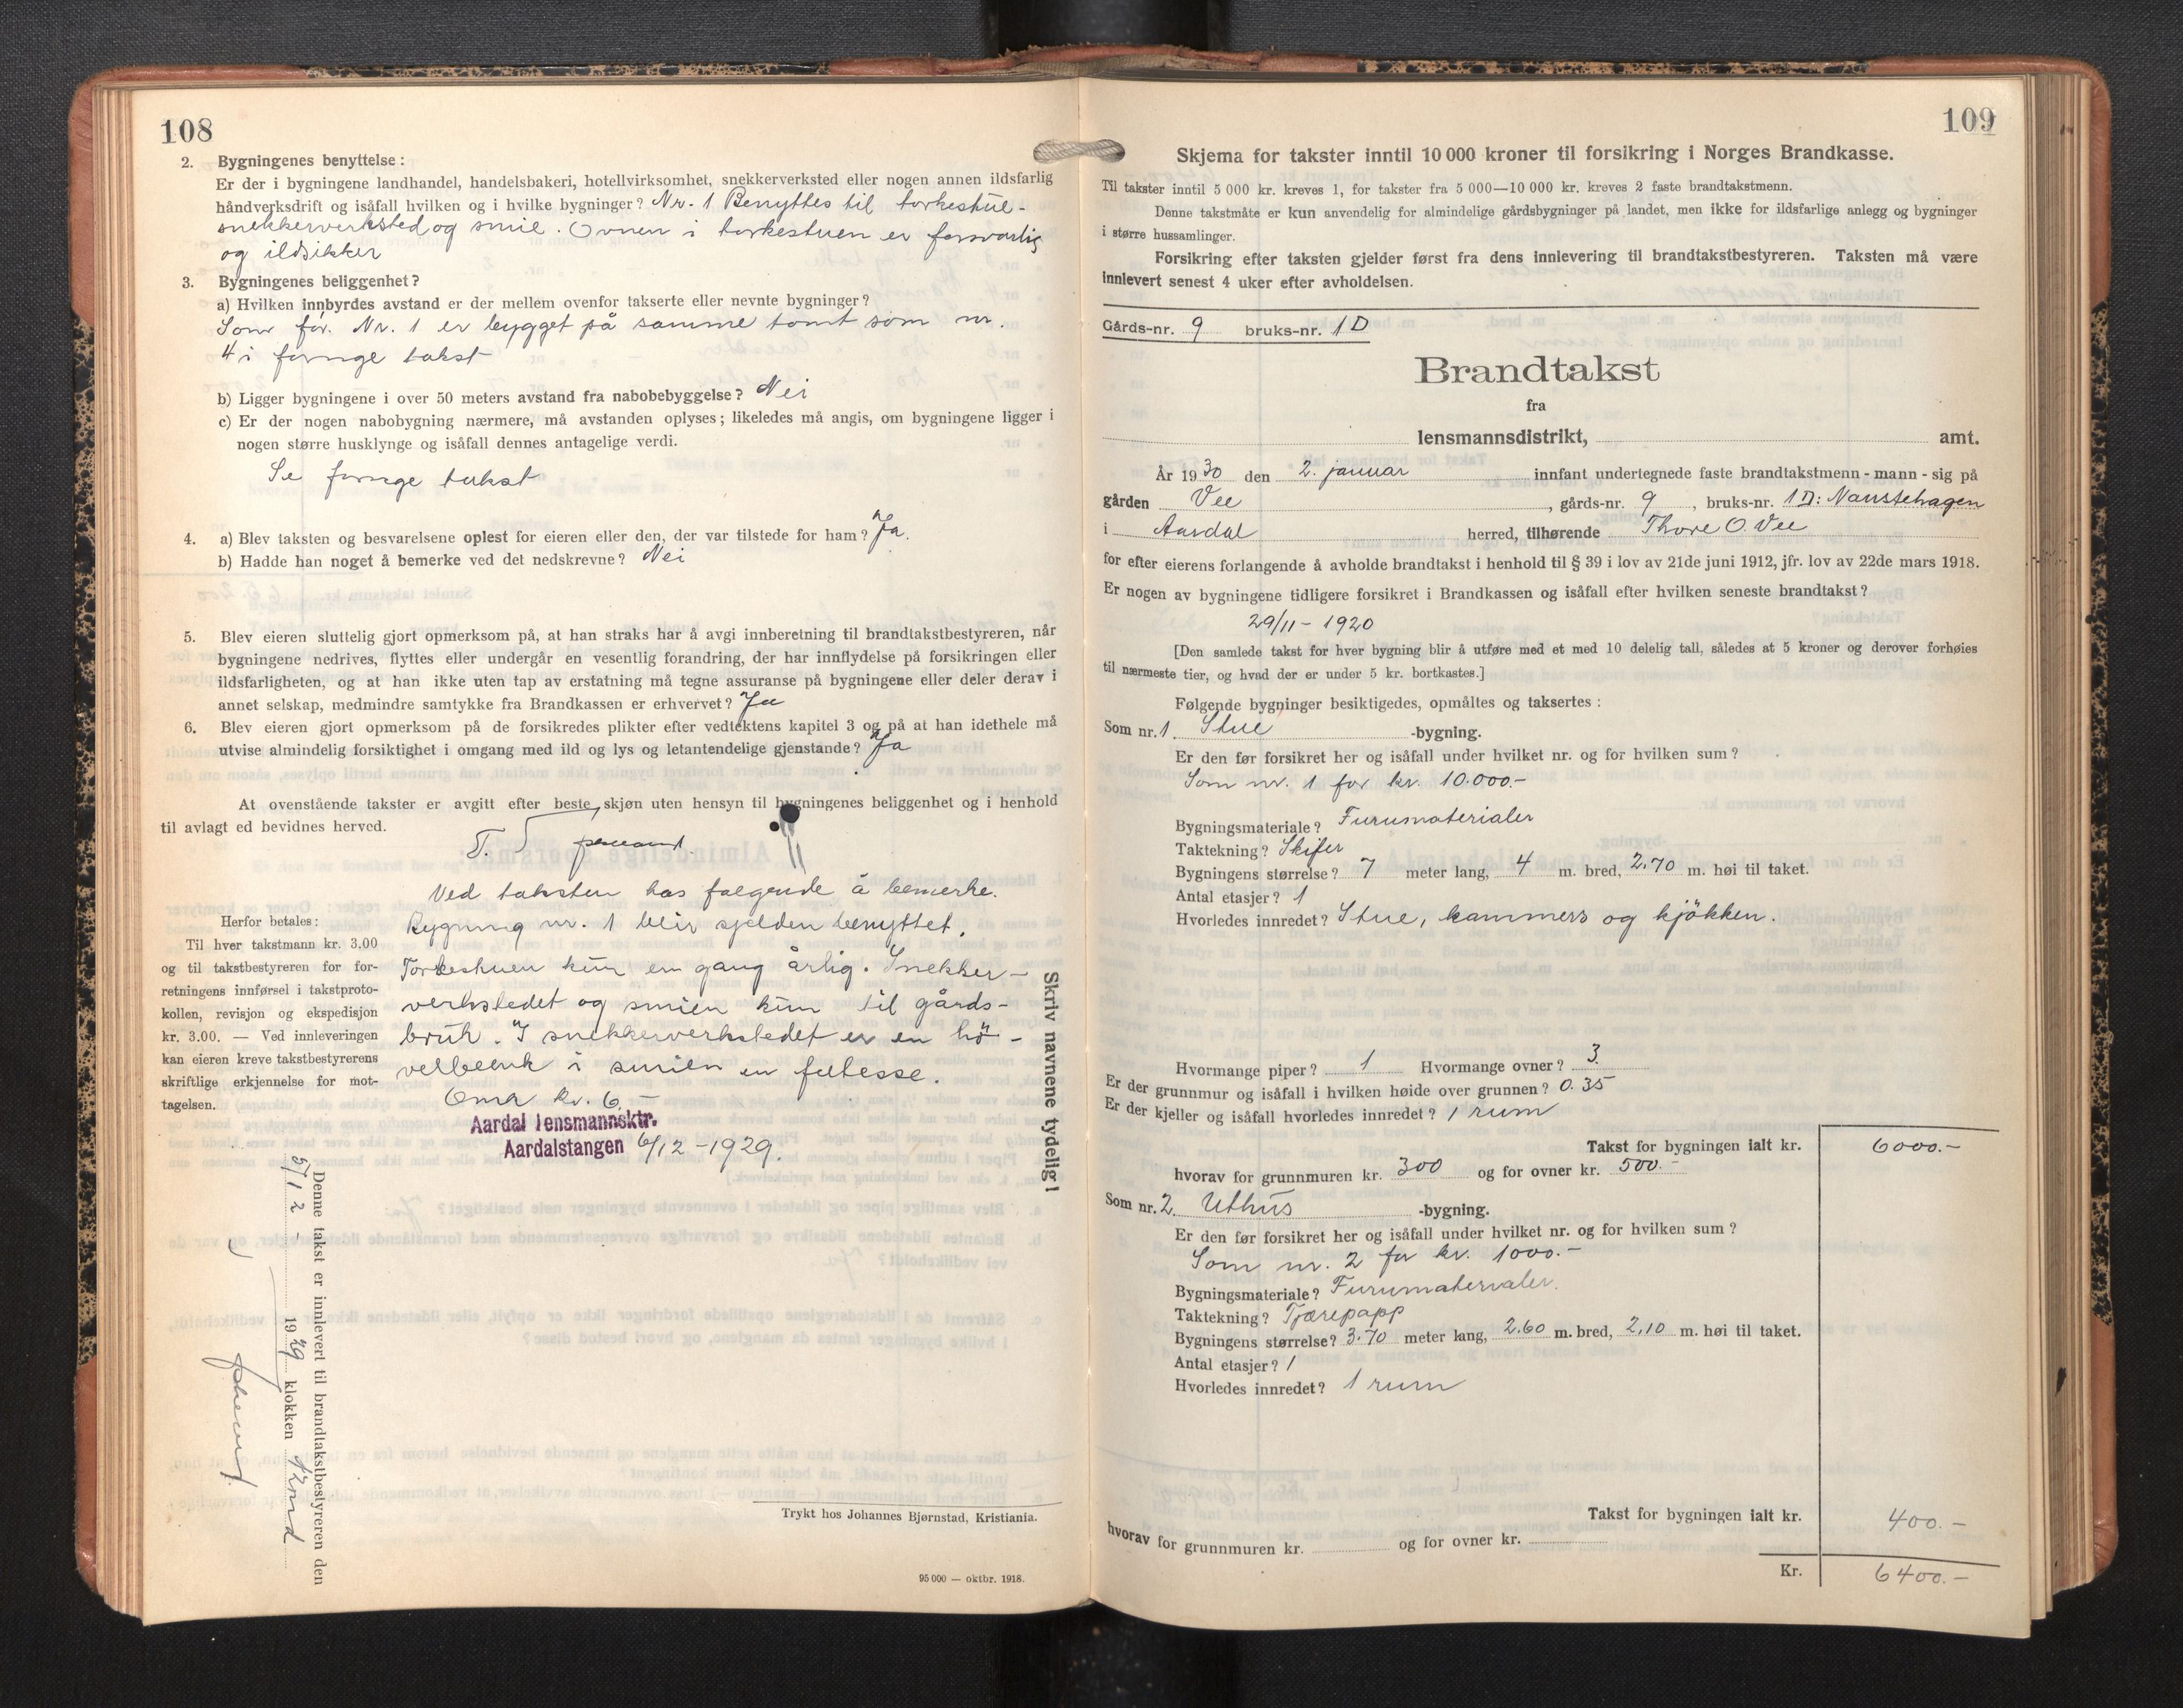 108
2. Bygningenes benyttelse:
Er der i bygningene landhandel, handelsbakeri, hotellvirksomhet, snekkerverksted eller nogen annen ildsfarlig
håndverksdrift og isåfall hvilken og i hvilke bygninger? Nr. 1 Benyttes til torkestue-
snekkerverksted og smie. Ovnen i torkestuen er forsvarlig
og ildsikker
3. Bygningenes beliggenhet?
a) Hvilken innbyrdes avstand er der mellem ovenfor takserte eller nevnte bygninger?
Som før. Nr. 1 er bygget på samme tomt som nr.
4 i forrige takst
b) Ligger bygningene i over 50 meters avstand fra nabobebyggelse? Nei
c) Er der nogen nabobygning nærmere, må avstanden oplyses; likeledes må angis, om bygningene ligger i
nogen større husklynge og isåfall dennes antagelige verdi.
Se forrige takst
4. a) Blev taksten og besvarelsene oplest for eieren eller den, der var tilstede for ham? Ja.
b) Hadde han noget å bemerke ved det nedskrevne? Nei
5. Blev eieren sluttelig gjort opmerksom på, at han straks har å avgi innberetning til brandtakstbestyreren, når
bygningene nedrives, flyttes eller undergår en vesentlig forandring, der har innflydelse på forsikringen eller
ildsfarligheten, og at han ikke uten tap av erstatning må tegne assuranse på bygningene eller deler derav i
annet selskap, medmindre samtykke fra Brandkassen er erhvervet? Ja
6. Blev eieren gjort opmerksom på de forsikredes plikter efter vedtektens kapitel 3 og på at han idethele må
utvise almindelig forsiktighet i omgang med ild og lys og letantendelige gjenstande? Ja
At ovenstående takster er avgitt efter beste skjøn uten hensyn til bygningenes beliggenhet og i henhold
til avlagt ed bevidnes herved.
Ved taksten has følgende å bemerke.
Bygning nr. 1 blir sjelden benyttet.
Torkestuen kun en gang årlig. Snekker-
verkstedet og smien kun til gårds-
bruk. I snekkerverkstedet er en hö-
velbenk i smien en feltesse.
Oma kr. 6.-
Aardal lensmannsktr.
Aardalstangen 6/12-1929.
Herfor betales:
Til hver takstmann kr. 3.00
og til takstbestyreren for for-
retningens innførsel i takstproto-
kollen, revisjon og ekspedisjon
kr. 3.00. — Ved innleveringen
kan eieren kreve takstbestyrerens
skriftlige erkjennelse for mot-
tagelsen.
Skriv navnene tydelig!
Denne takst er innlevert til brandtakstbestyreren den
5/12 - 1929 klokken 12 md
Trykt hos Johannes Bjørnstad, Kristiania.
95 000 — oktbr. 1918.
109
Skjema for takster inntil 10 000 kroner til forsikring i Norges Brandkasse.
Til takster inntil 5 000 kr. kreves 1, for takster fra 5 000—10 000 kr. kreves 2 faste brandtakstmenn.
Denne takstmåte er kun anvendelig for almindelige gårdsbygninger på landet, men ikke for ildsfarlige anlegg og bygninger
i større hussamlinger.
Forsikring efter taksten gjelder først fra dens innlevering til brandtakstbestyreren. Taksten må være
innlevert senest 4 uker efter avholdelsen.
Gårds-nr. 9 bruks-nr. 1 D
Brandtakst
fra
lensmannsdistrikt, amt.
År 1930 den 2. januar innfant undertegnede faste brandtakstmenn - mann - sig på
gården Vee, gårds-nr. 9, bruks-nr. 1 D: Naustehagen
i Aardal herred, tilhørende Thore O. Vee
for efter eierens forlangende å avholde brandtakst i henhold til § 39 i lov av 21de juni 1912, jfr. lov av 22de mars 1918.
Er nogen av bygningene tidligere forsikret i Brandkassen og isåfall efter hvilken seneste brandtakst?
29/11 - 1920
[Den samlede takst for hver bygning blir å utføre med et med 10 delelig tall, således at 5 kroner og derover forhøies
til nærmeste tier, og hvad der er under 5 kr. bortkastes.]
Følgende bygninger besiktigedes, opmåltes og taksertes:
Som nr. 1. Stue -bygning.
Er den før forsikret her og isåfall under hvilket nr. og for hvilken sum?
Som nr. 1 for kr. 10.000.-
Bygningsmateriale? Furumaterialer
Taktekning? Skifer
Bygningens størrelse? 7 meter lang, 4 m. bred, 2.70 m. høi til taket.
Antal etasjer? 1
Hvorledes innredet? Stue, kammers og kjökken.
Hvormange piper? 1 Hvormange ovner? 3.
Er der grunnmur og isåfall i hvilken høide over grunnen? 0.35
Er der kjeller og isåfall hvorledes innredet? 1 rum
Takst for bygningen ialt kr. 6000.-
hvorav for grunnmuren kr. 300 og for ovner kr. 500.-
Som nr. 2. Uthus -bygning.
Er den før forsikret her og isåfall under hvilket nr. og for hvilken sum?
Som nr. 2 for kr. 1000.-
Bygningsmateriale? Furumaterialer.
Taktekning? Tjærepapp
Bygningens størrelse? 3.70 meter lang, 2.60 m. bred, 2.10 m. høi til taket.
Antal etasjer? 1
Hvorledes innredet? 1 rum
Takst for bygningen ialt kr. 400.-
hvorav for grunnmuren kr. og for ovner kr.
Kr. 6400.-